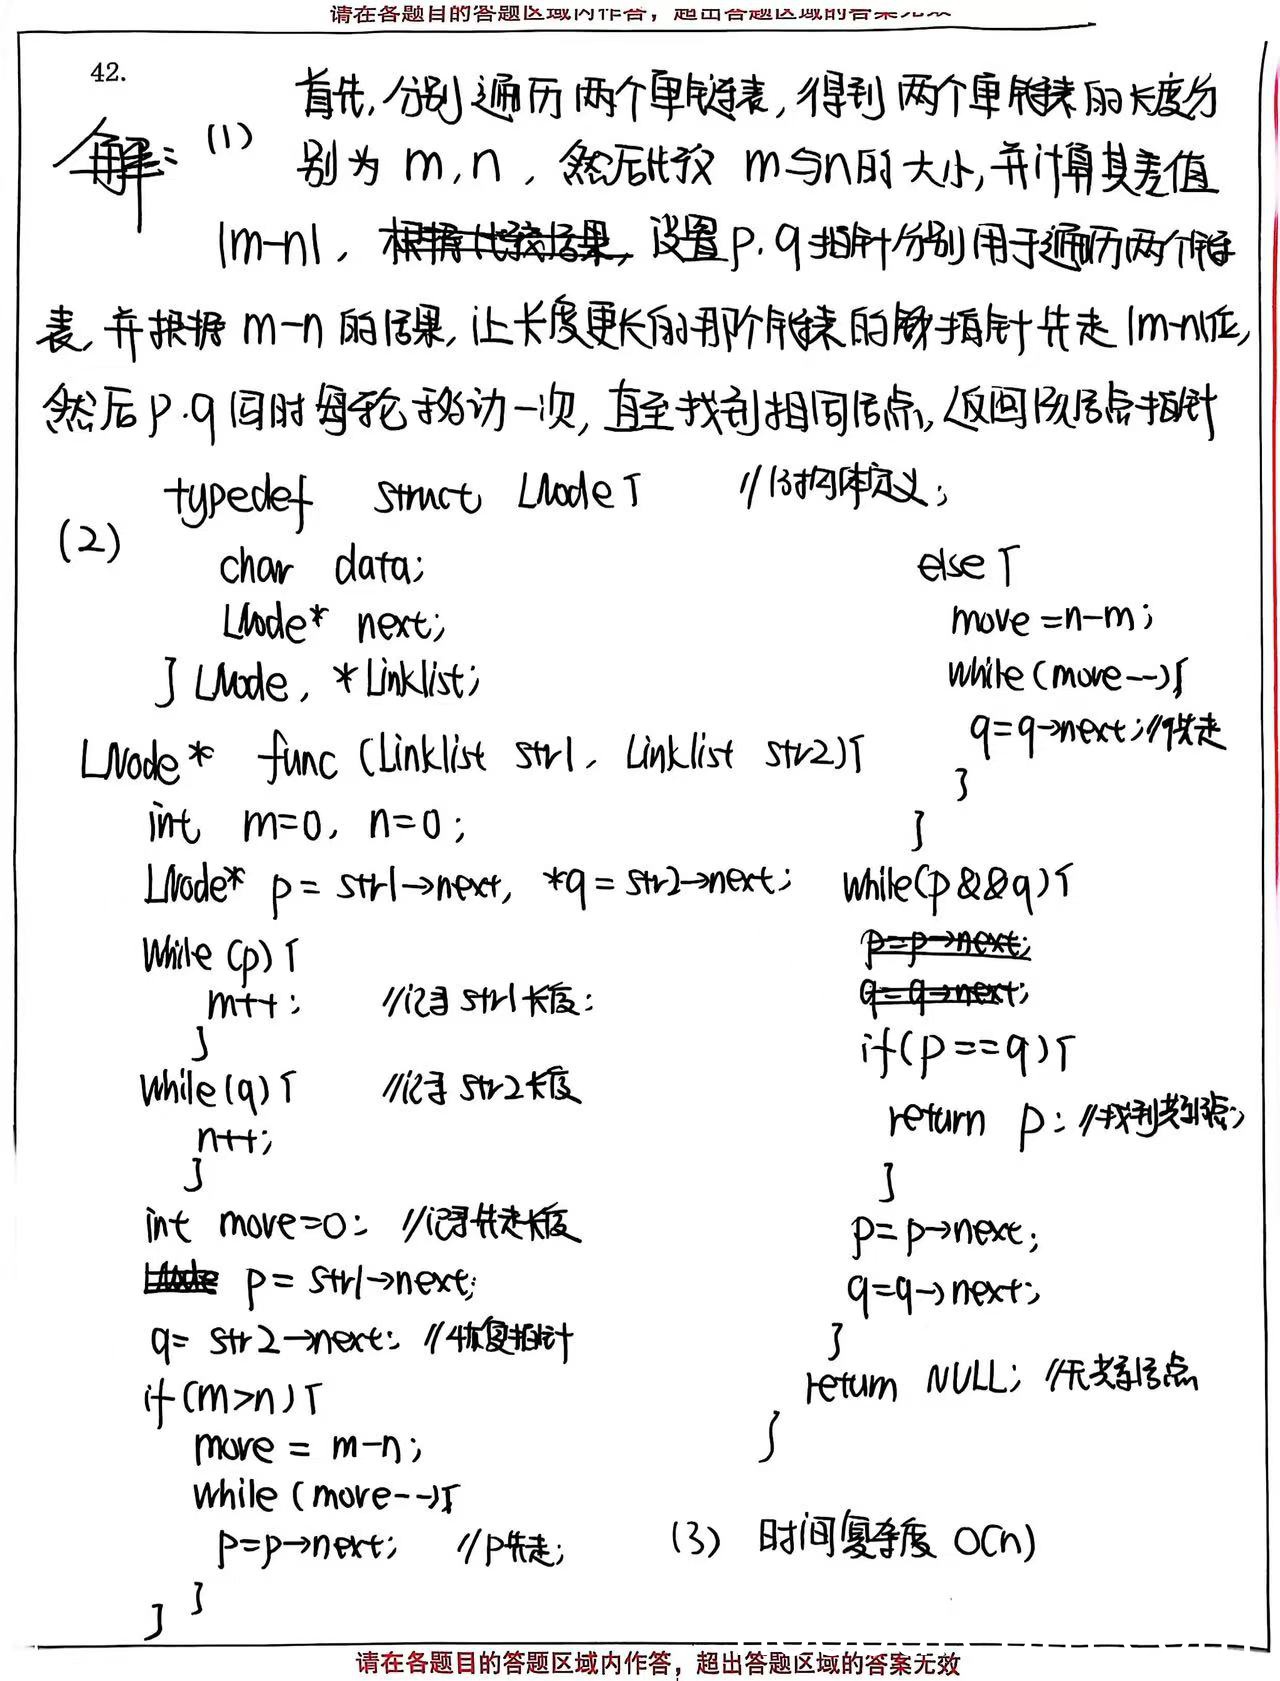 请在各题目的答题区域内作答，超出答题区域的答案无效
42.
解：(1) 首先，分别遍历两个单链表，得到两个单链表的长度分
别为 m，n，然后比较 m与n的大小，并计算其差值
|m-n|，根据比较结果，设置p.q指针分别用于遍历两个链
表，并根据 m-n 的结果，让长度更长的那个链表的指针先走 |m-n|位，
然后 p.q 同时每轮移动一次，直至找到相同结点，返回该结点指针
(2) typedef struct LNode{ //结构体定义；
char data;
LNode* next;
} LNode, *Linklist;
LNode* func (Linklist str1, Linklist str2){
int m=0, n=0;
LNode* p = str1->next, *q = str2->next;
while (p){
m++; //记录str1长度;
}
while (q){ //记录str2长度
n++;
}
int move=0; //记录先走长度
LNode p = str1->next;
q = str2->next; //恢复指针
if (m>n){
move = m-n;
while (move--){
p=p->next; //p先走;
}
}
else{
move=n-m;
while (move--){
q=q->next; //q先走
}
}
while(p&&q){
p=p->next;
q=q->next;
if(p==q){
return p; //找到共享结点;
}
p=p->next;
q=q->next;
}
return NULL; //无共享结点
}
(3) 时间复杂度 O(n)
请在各题目的答题区域内作答，超出答题区域的答案无效